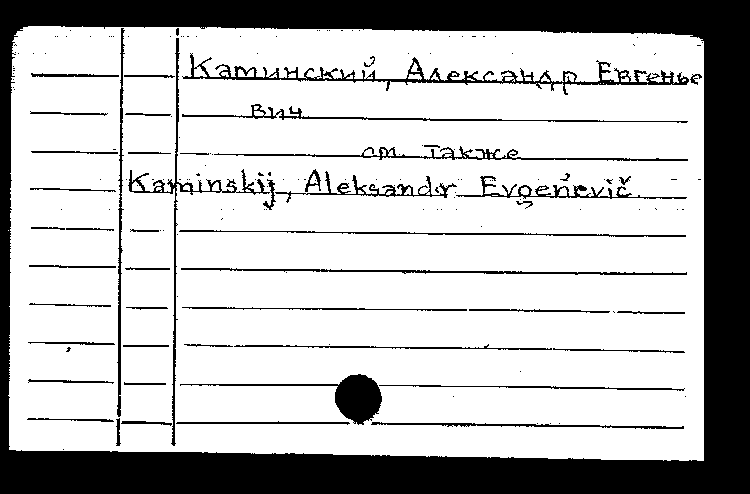 Каминский, Александр Евгенье
вич
см. также
Kaminskij, Aleksandr Evgen'evič